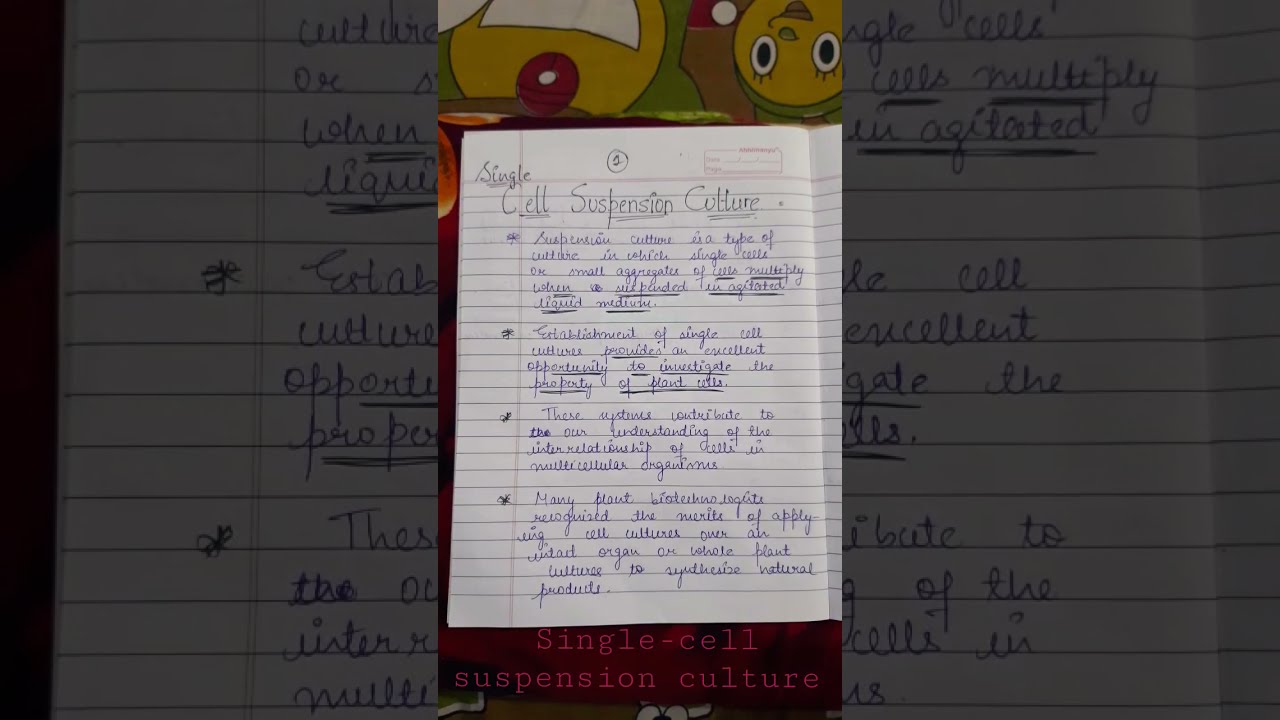 1
Abhimanyu
Date
Page
Single
Cell Suspension Culture.
* Suspension culture is a type of
culture in which single cells
or small aggregates of cells multiply
when suspended in agitated
liquid medium.
* Establishment of single cell
cultures provides an excellent
opportunity to investigate the
property of plant cells.
* These systems contribute to
the our understanding of the
interrelationship of cells in
multicellular organisms.
* Many plant biotechnologists
recognized the merits of apply-
ing cell cultures over an
intact organ or whole plant
cultures to synthesize natural
products.
Single-cell
suspension culture